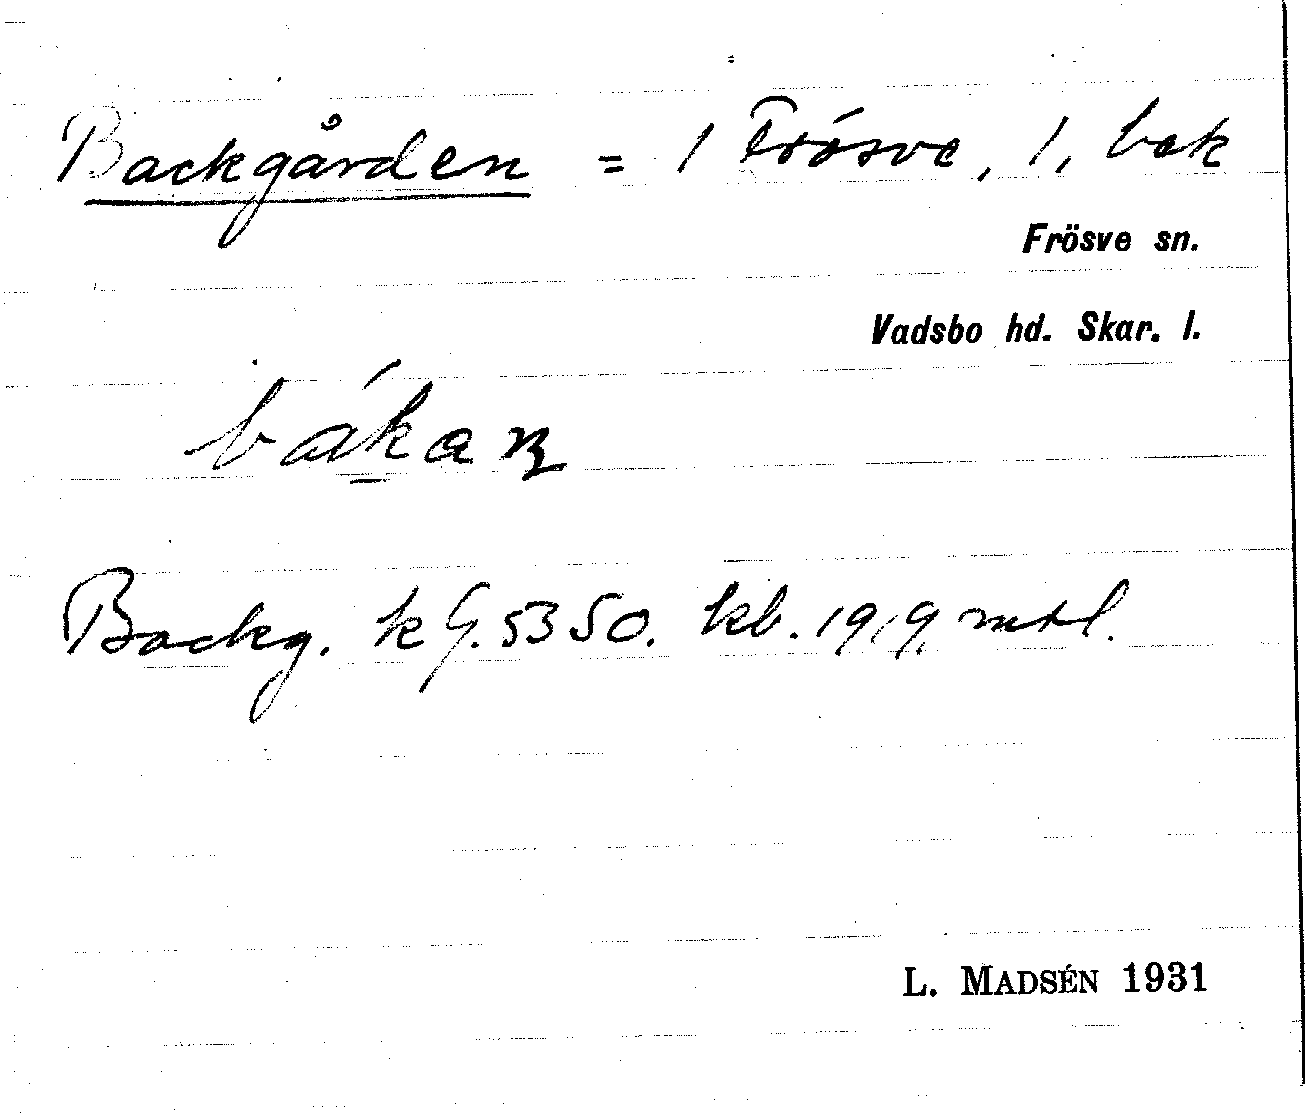 Backgården = 1 Frösve, 1, bek
Frösve sn.
Vadsbo hd. Skar. l.
bákan
Backg. kG. 5350. kb. 1919, mtl.
L. MADSÉN 1931